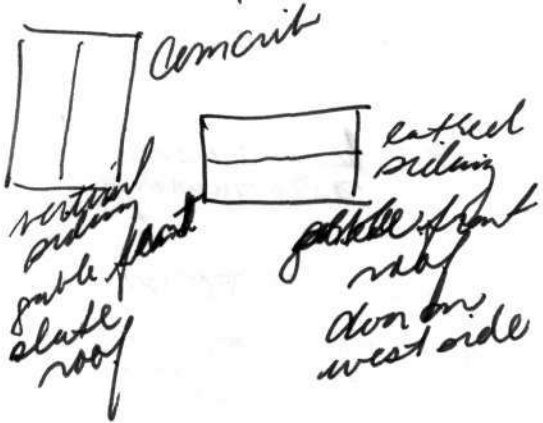 Corncrib
vertical
siding
gable front
slate
roof
siding
gable front
roof
door on
west side